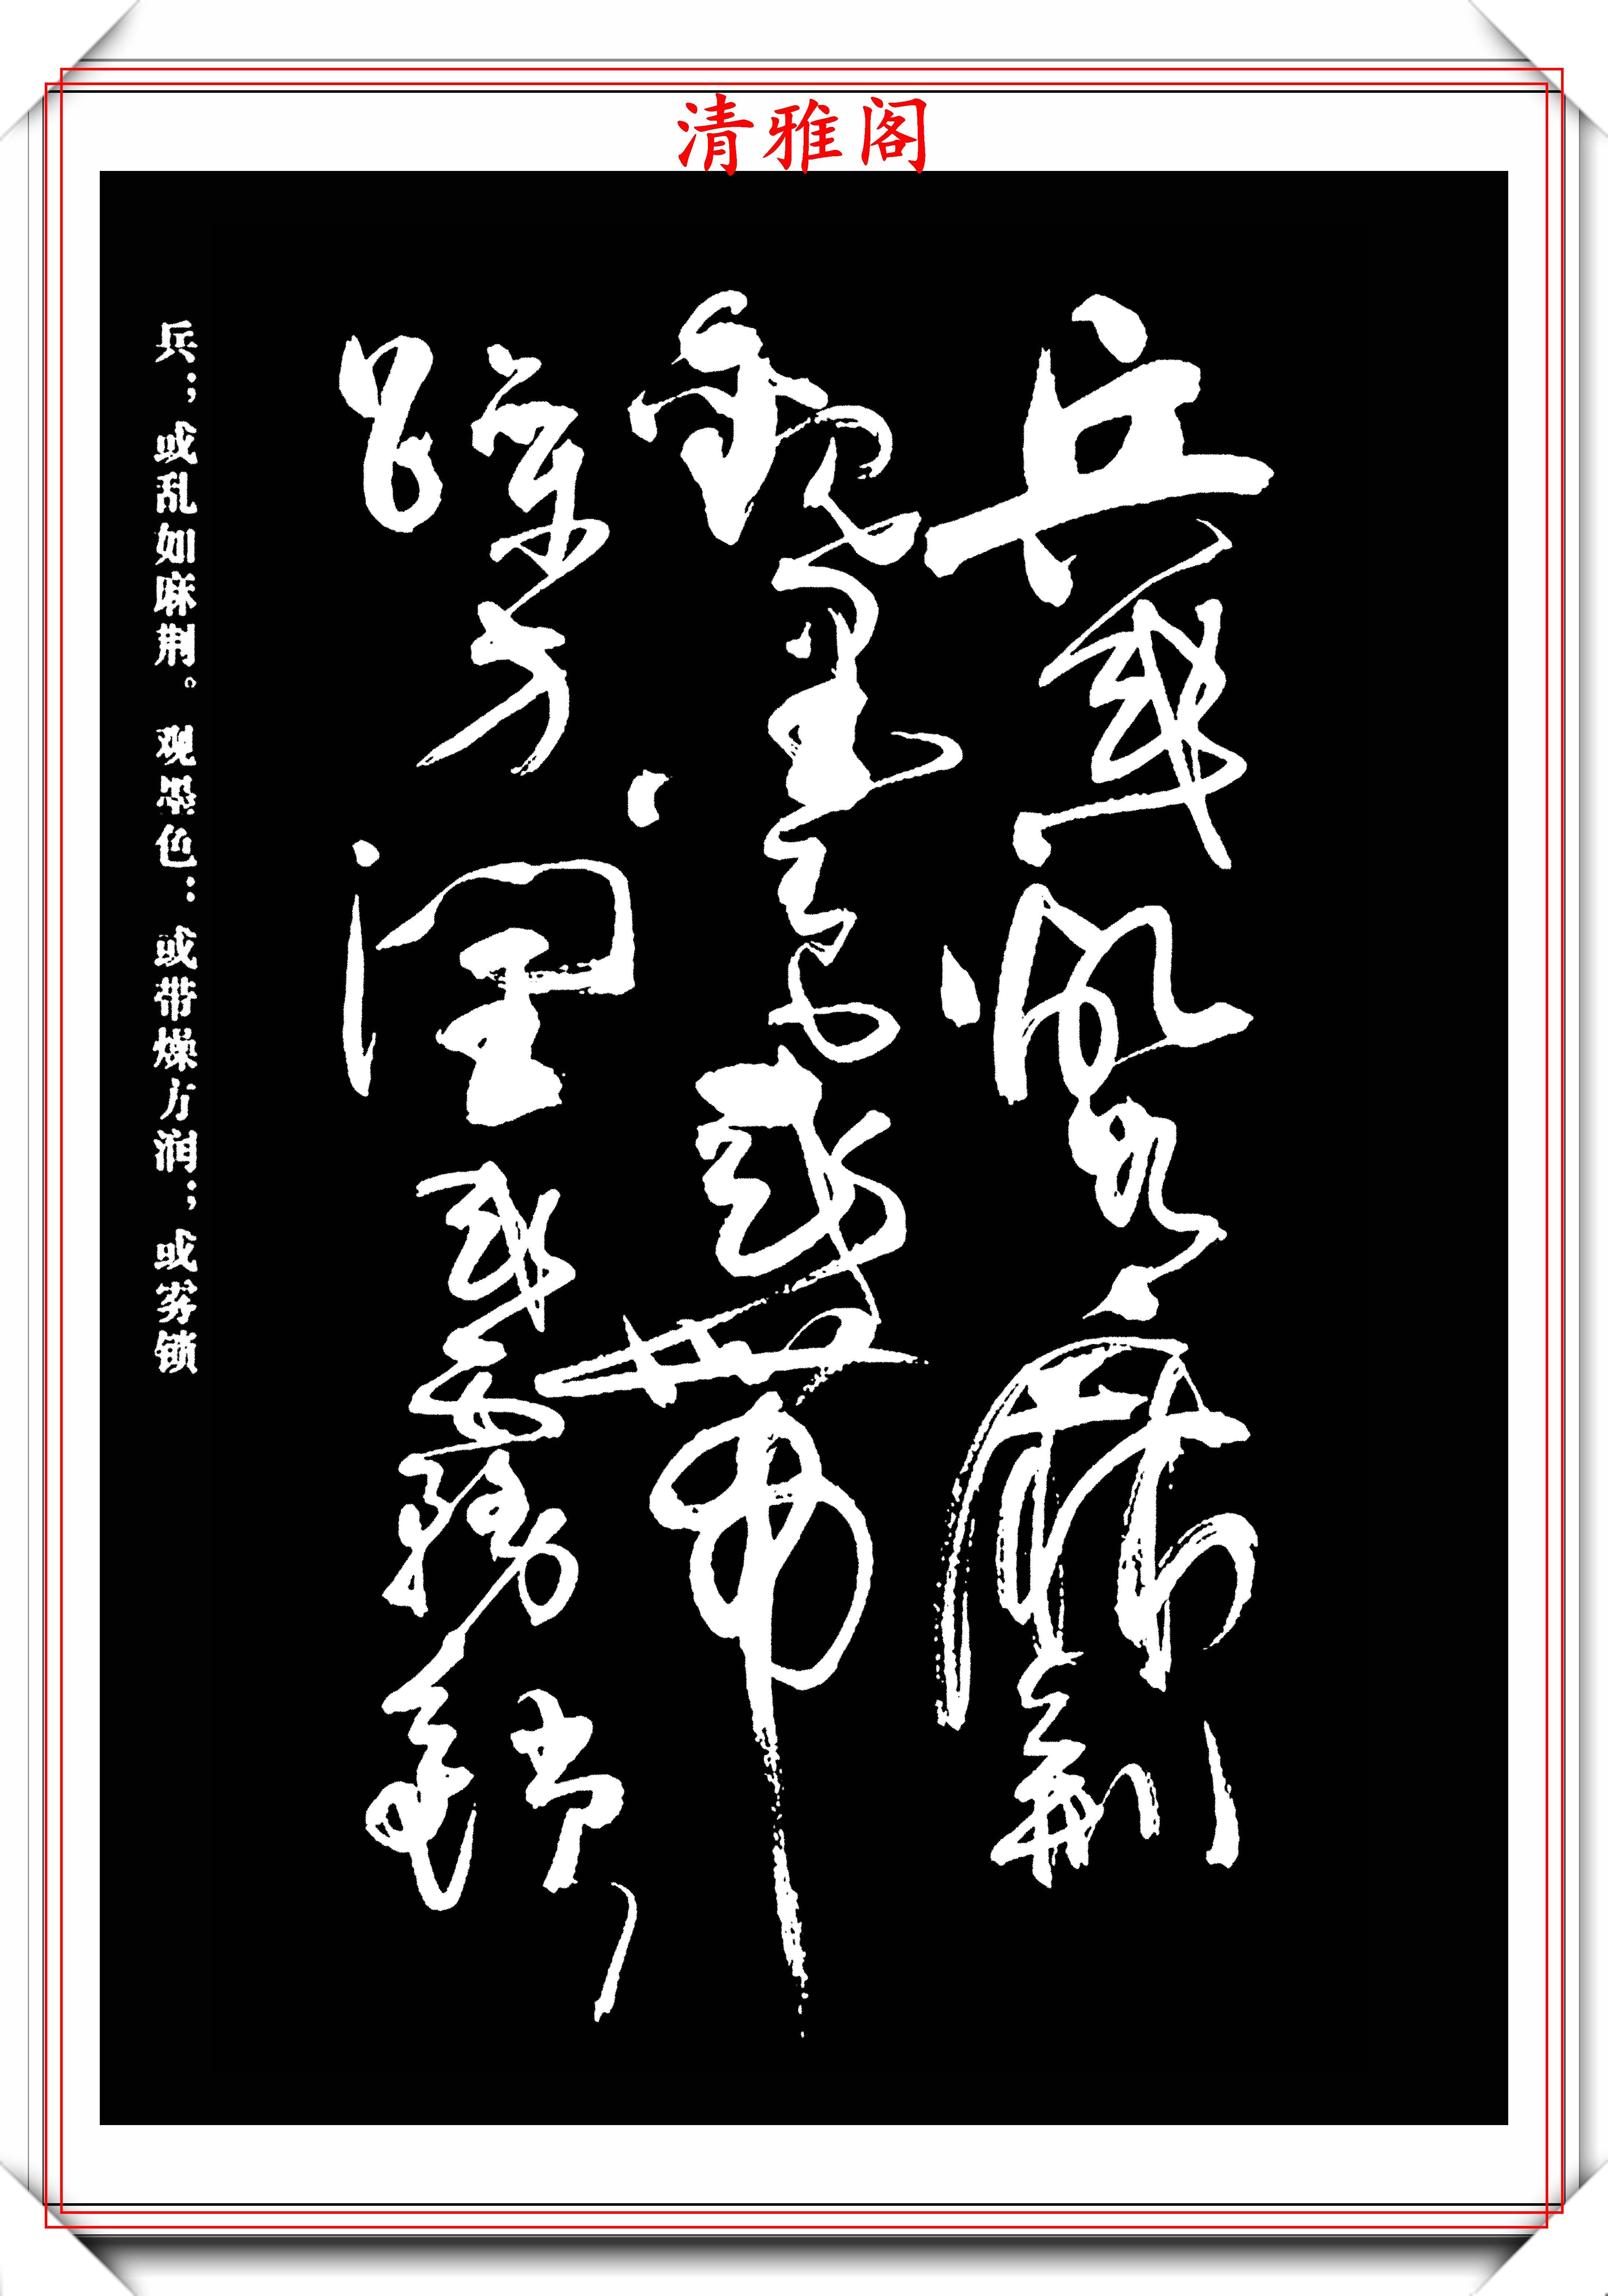 清雅阁
兵或亂如麻荆
觀墨色或帶
燥方潤或霧鎖
兵；或乱如麻荆。观墨色：或带燥方润；或雾锁